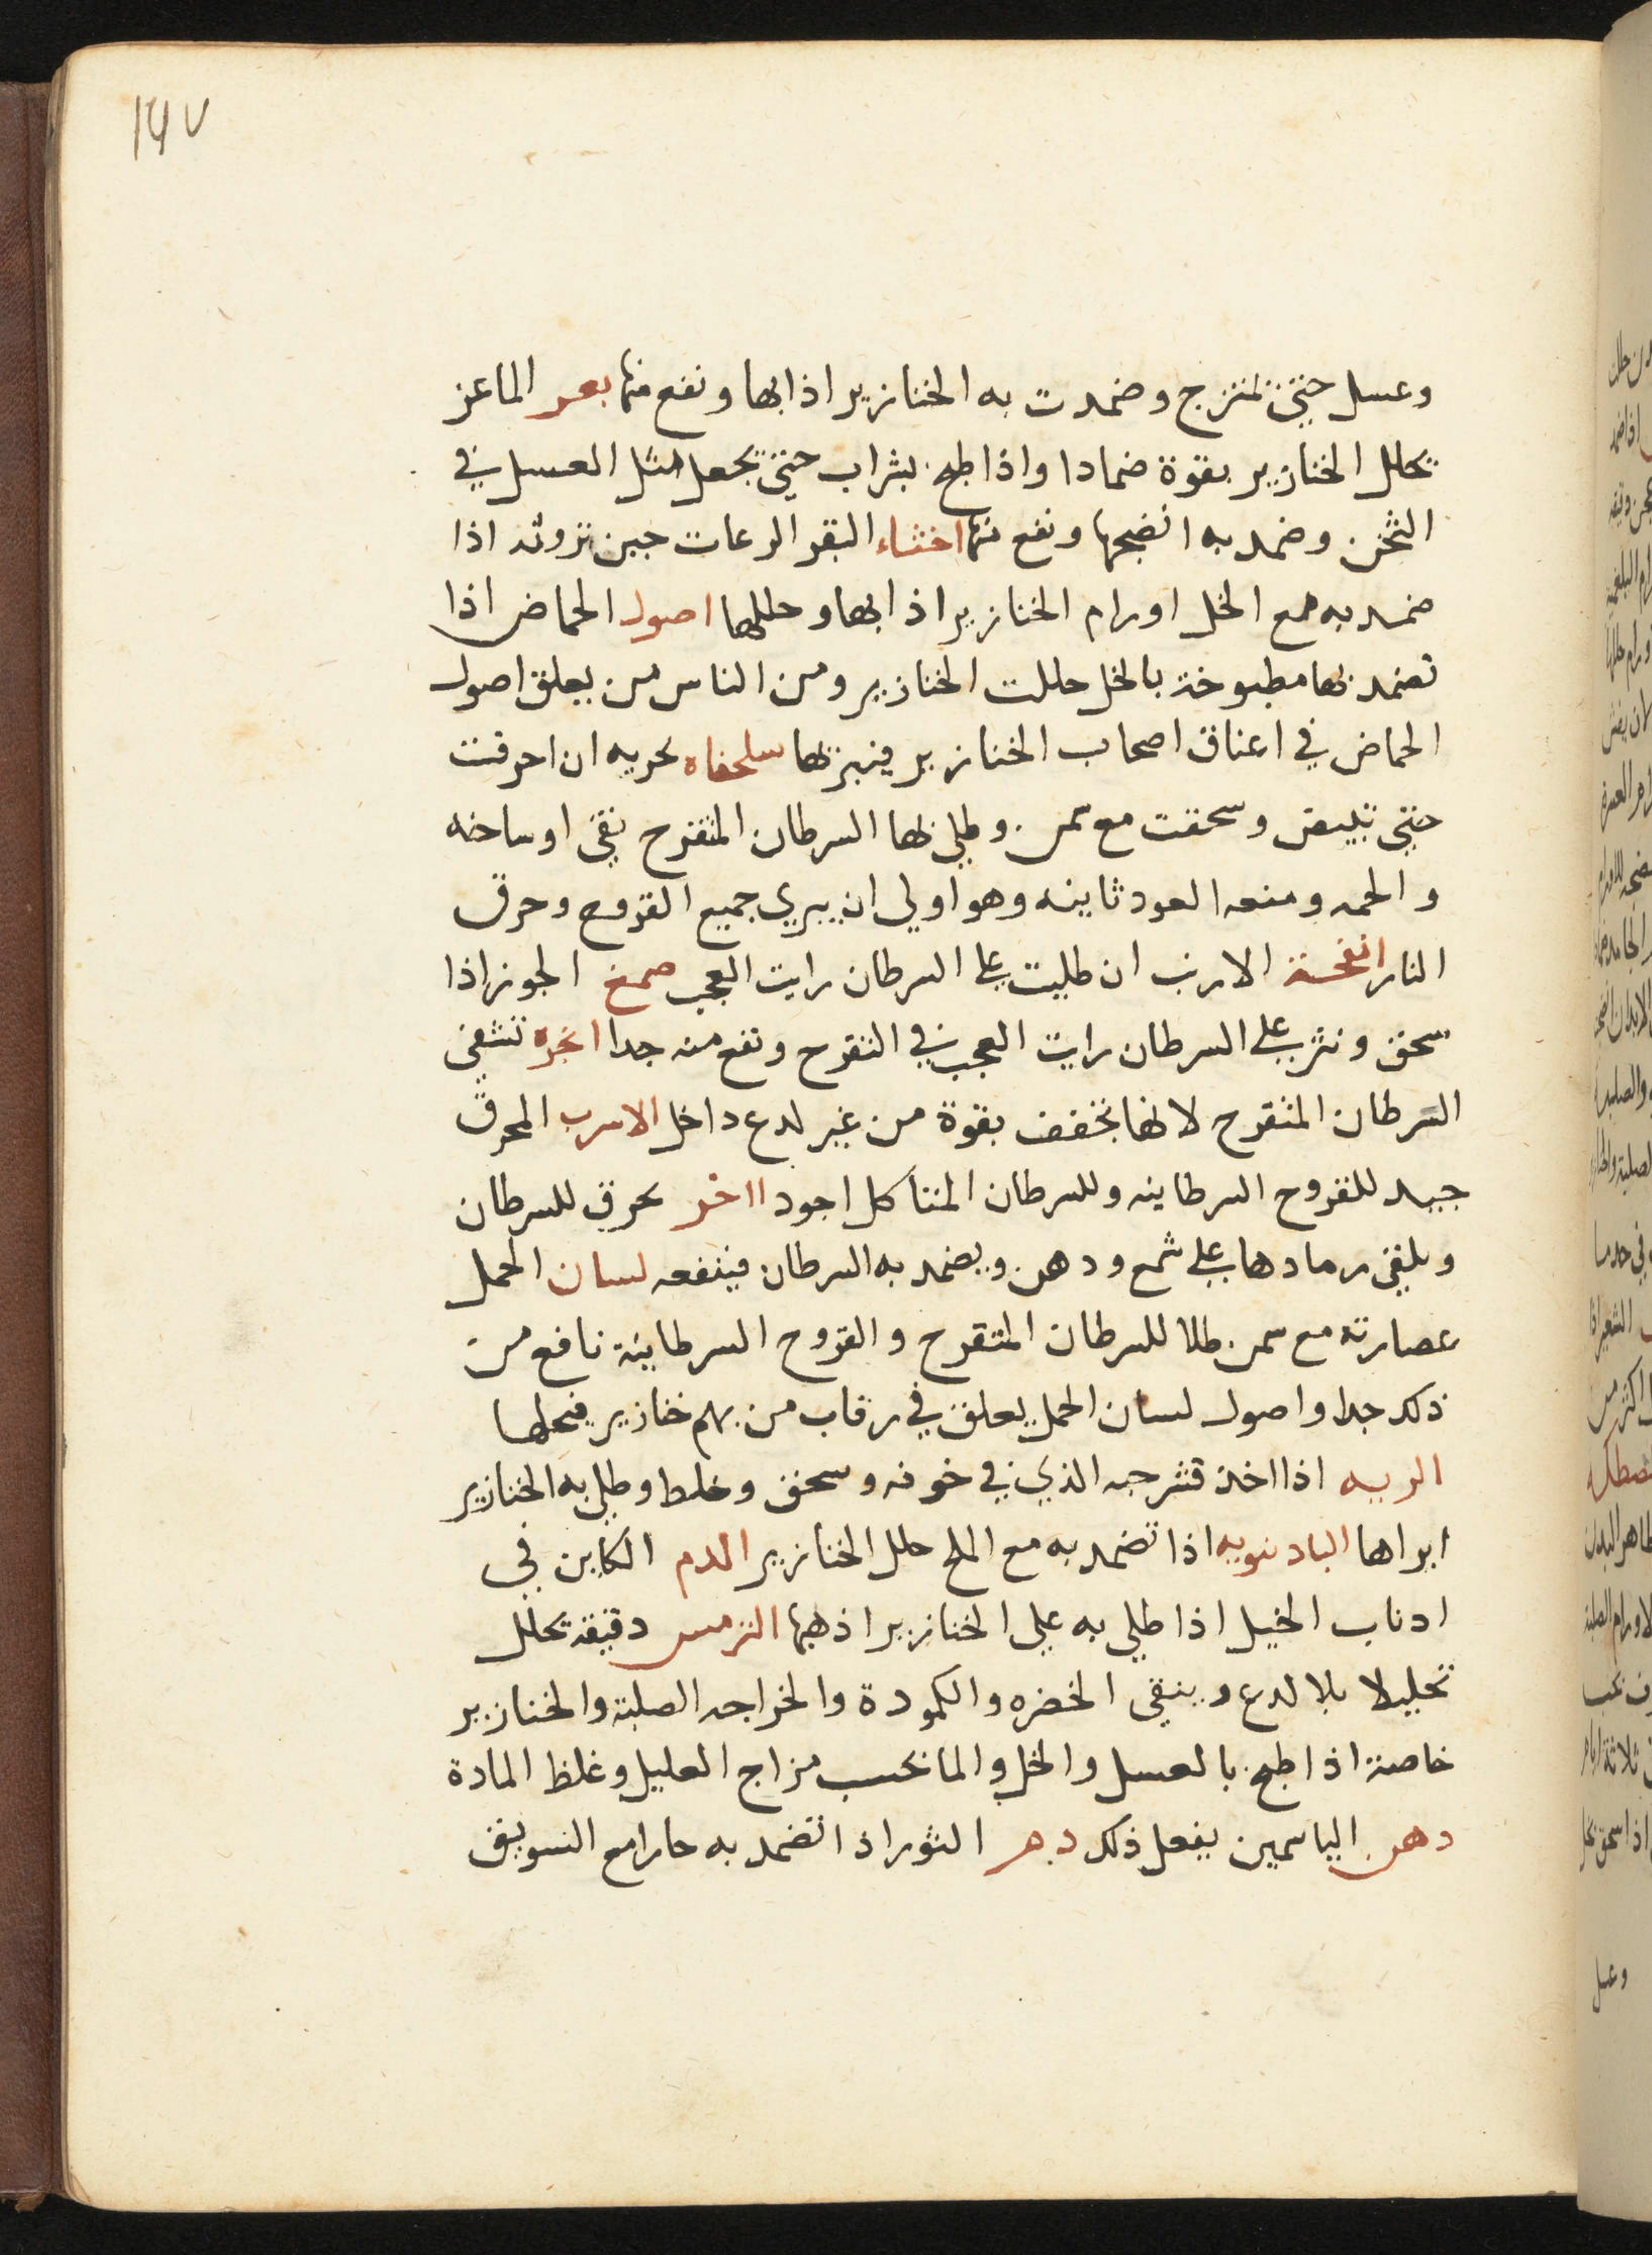 ١٤٧
وعسل حتى تمتزج وضمدت به الخنازير اذابها ونفع منها بعر الماعز
يحلل الخنازير بقوة ضمادا واذا طبخ بشراب حتى يجعل مثل العسل في
الثخن وضمد به انضجها ونفع منها اخثاء البقر الرعات حين تروثه اذا
ضمد به مع الخل اورام الخنازير اذابها وحللها اصول الحماض اذا
تضمد بها مطبوخة بالخل حللت الخنازير ومن الناس من يعلق اصول
الحماض في اعناق اصحاب الخنازير فيبريها سلحفاه بحريه ان احرقت
حتى تبيض وسحقت مع سمن وطلي بها السرطان المتقرح نقى اوساخه
والحمه ومنعه العود ثانيه وهو اولي ان يبري جميع القروح وحرق
النار انفحة الارنب ان طليت على السرطان رايت العجب صمغ الجوز اذا
سحق ونثر على السرطان رايت العجب في التقرح ونفع منه جدا انجره تشفي
السرطان المتقرح لانها تجفف بقوة من غير لدع داخل الاسرب المحرق
جيد للقروح السرطانيه وللسرطان المتاكل اجود ااخر يحرق للسرطان
ويلقي رمادها على شمع ودهن ويضمد به السرطان فينفعه لسان الحمل
عصارته مع سمن طلا للسرطان المتقرح والقروح السرطانية نافع من
ذلك جدا واصول لسان الحمل يعلق في رقاب من بهم خنازير فيحللها
الريه اذا اخذ قشر حبه الذي في جوفه وسحق وخلط وطلي به الخنازير
ابراها البادنبويه اذا تضمد به مع الملح حلل الخنازير الدم الكاين في
ادناب الخيل اذا طلي به على الخنازير اذهبها الترمس دقيقه يحلل
تحليلا بلا لدع وينقي الخضره والكمودة والخراجه الصلبة والخنازير
خاصة اذا طبخ بالعسل والخل والما بحسب مزاج العليل وغلظ المادة
دهن الياسمين يفعل ذلك دم الثور اذا تضمد به حارا مع السويق
وعسل